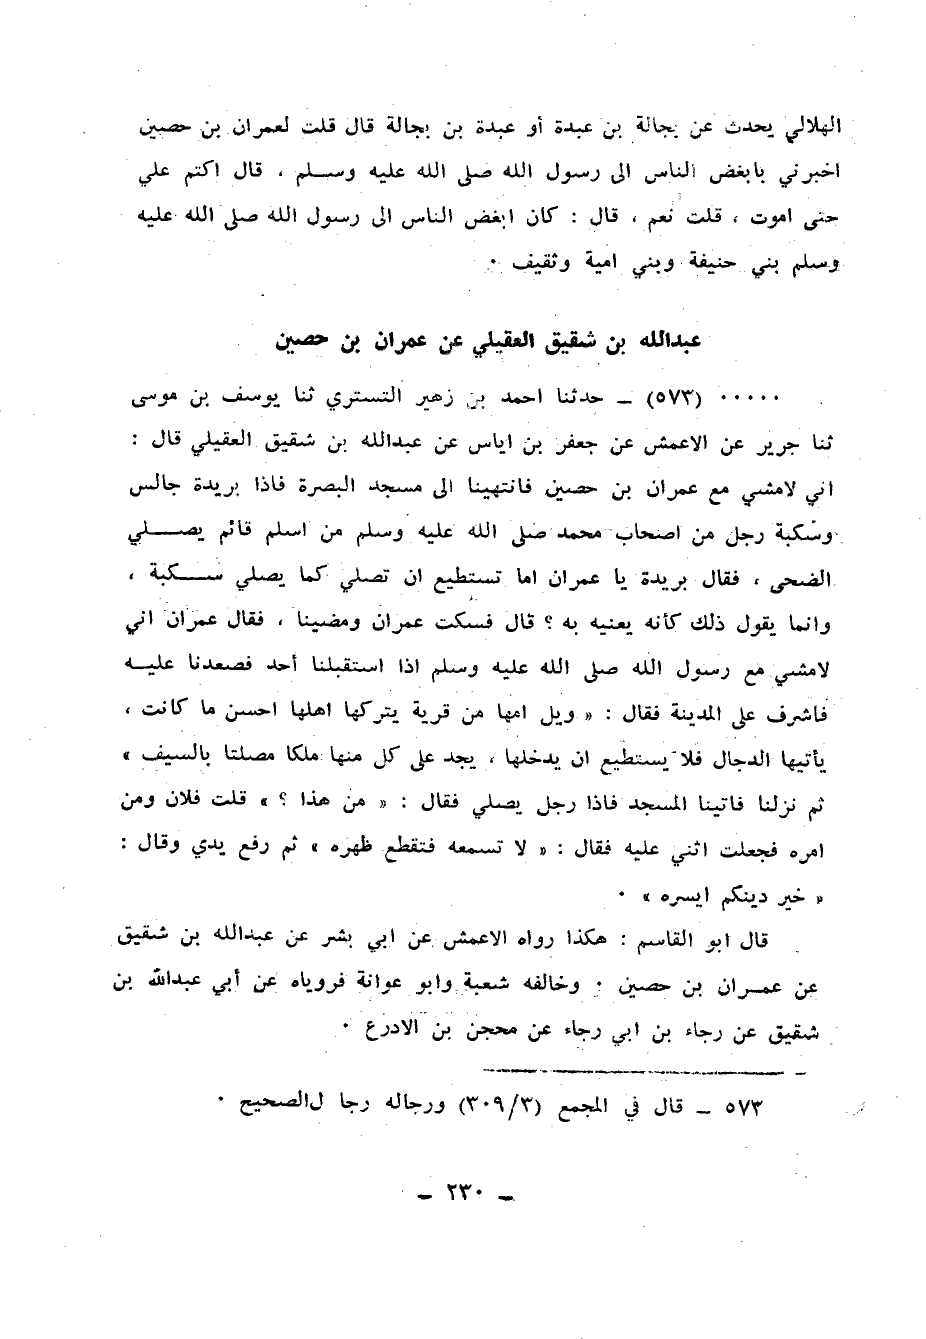 الهلالي يحدث عن بجالة بن عبدة أو عبدة بن بجالة قال قلت لعمران بن حصين
اخبرني بابغض الناس الى رسول الله صلى الله عليه وسلم ، قال اكتم علي
حتى اموت ، قلت نعم ، قال : كان ابغض الناس الى رسول الله صلى الله عليه
وسلم بني حنيفة وبني امية وثقيف ٠
عبدالله بن شقيق العقيلي عن عمران بن حصين
٠٠٠٠٠ (٥٧٣) ـ حدثنا احمد بن زهير التستري ثنا يوسف بن موسى
ثنا جرير عن الاعمش عن جعفر بن اياس عن عبدالله بن شقيق العقيلي قال :
اني لامشي مع عمران بن حصين فانتهينا الى مسجد البصرة فاذا بريدة جالس
وسكبة رجل من اصحاب محمد صلى الله عليه وسلم من اسلم قائم يصلي
الضحى ، فقال بريدة يا عمران اما تستطيع ان تصلي كما يصلي سكبة ،
وانما يقول ذلك كأنه يعنيه به ؟ قال فسكت عمران ومضينا ، فقال عمران اني
لامشي مع رسول الله صلى الله عليه وسلم اذا استقبلنا أحد فصعدنا عليه
فاشرف على المدينة فقال : « ويل امها من قرية يتركها اهلها احسن ما كانت ،
يأتيها الدجال فلا يستطيع ان يدخلها ، يجد على كل منها ملكا مصلتا بالسيف »
ثم نزلنا فاتينا المسجد فاذا رجل يصلي فقال : « من هذا ؟ » قلت فلان ومن
امره فجعلت اثني عليه فقال : « لا تسمعه فتقطع ظهره » ثم رفع يدي وقال :
« خير دينكم ايسره » ٠
قال ابو القاسم : هكذا رواه الاعمش عن ابي بشر عن عبدالله بن شقيق
عن عمران بن حصين ٠ وخالفه شعبة وابو عوانة فروياه عن أبي عبدالله بن
شقيق عن رجاء بن ابي رجاء عن محجن بن الادرع ٠
٥٧٣ ـ قال في المجمع (٣٠٩/٣) ورجاله رجا ل الصحيح ٠
ـ ٢٣٠ ـ